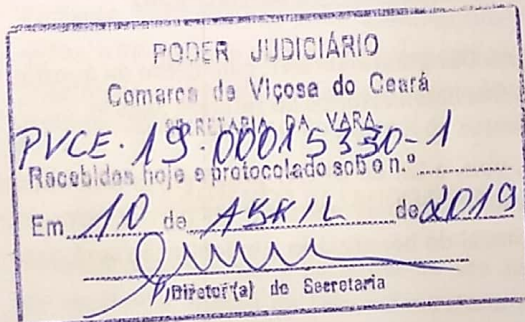 PODER JUDICIÁRIO
Comarca de Viçosa do Ceará
SECRETARIA DA VARA
PVCE.19.00015330-1
Recebidos hoje e protocolado sob o n.º
Em 10 de ABRIL de 2019
Diretor(a) de Secretaria